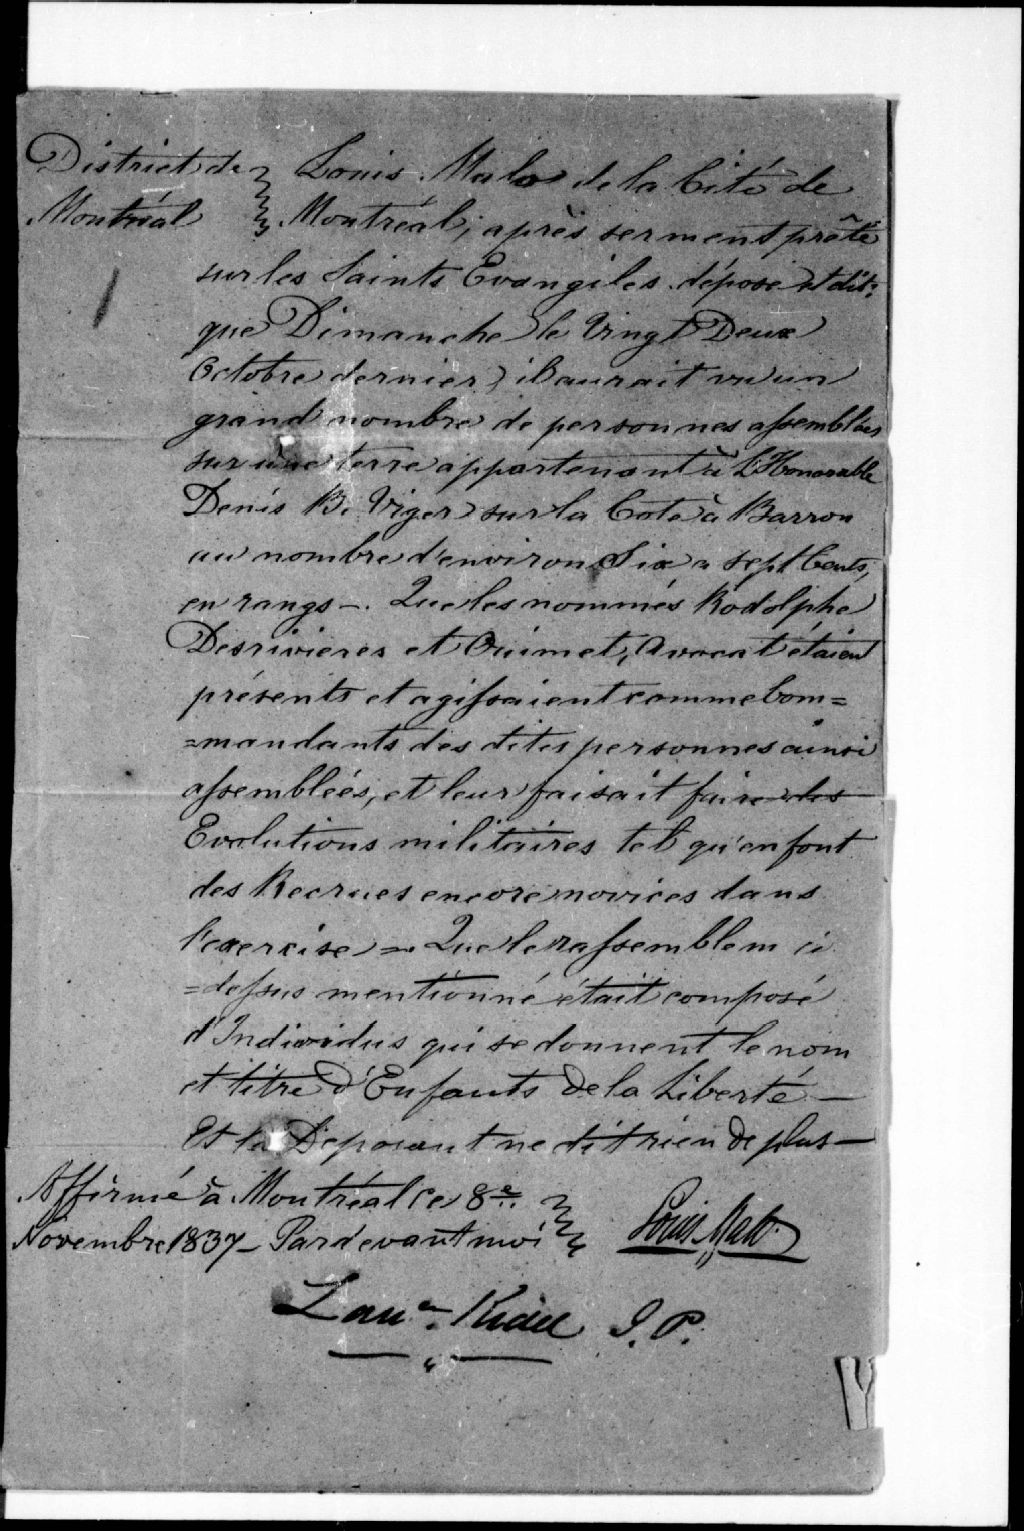 District de Louis Malo de la Cité de
Montréal Montréal, après serment prêté
sur les Saints Evangiles dépose et dit:
que Dimanche le Vingt Deux
Octobre dernier, il aurait vu un
grand nombre de personnes assemblées
sur une terre appartenant à L'Honorable
Denis B. Viger sur la Cote à Barron
au nombre d'environ Six a sept Cents,
en rangs —. Que les nommés Rodolphe
Desrivieres et Ouimet, Avocat étaient
présents et agissaient comme Com=
=mandants des dites personnes ainsi
assembléés, et leur faisait faire des
Evolutions militaires tel qu'en font
des Recrues encore novices dans
l'exercise =. Que le rassemblem ci
=dessus mentionné était composé
d'Individus qui se donnent le nom
et titre d'Enfants de la Liberté —
Et le Déposant ne dit rien de plus —
Affirmé à Montréal ce 8e
Novembre 1837 — Pardevant moi Louis Malo
Laue. Kidd J.P.